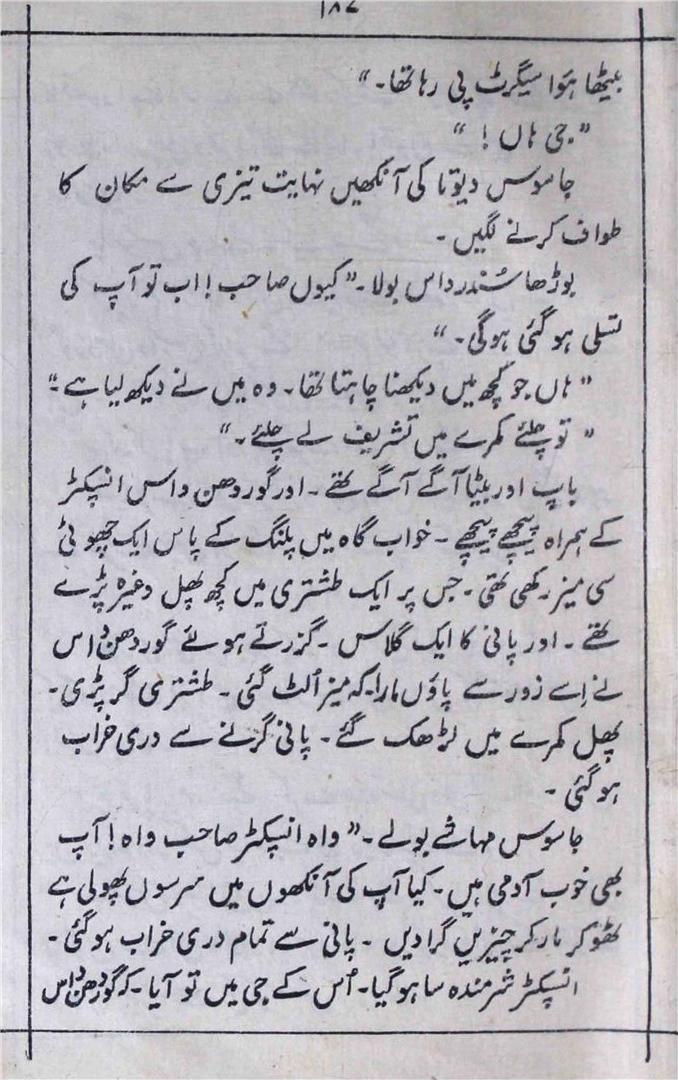 ۱۸۷
بیٹھا ہوٗا سیگرٹ پی رہا تھا۔"
"جی ہاں! "
جاسوس دیوتا کی آنکھیں نہایت تیزی سے مکان کا
طواف کرنے لگیں۔
بوڑھا سُندر داس بولا۔ "کیوں صاحب! اب تو آپ کی
تسلی ہو گئی ہوگی۔"
"ہاں جو کچھ میں دیکھنا چاہتا تھا۔ وہ میں نے دیکھ لیا ہے۔"
"تو چلئے کمرے میں تشریف لے چلئے۔"
باپ اور بیٹا آگے آگے تھے۔ اور گوردھن داس انسپکٹر
کے ہمراہ پیچھے پیچھے۔ خواب گاہ میں پلنگ کے پاس ایک چھوٹی
سی میز رکھی تھی۔ جس پر ایک طشتری میں کچھ پھل وغیرہ پڑے
تھے۔ اور پانی کا ایک گلاس۔ گزرتے ہوئے گوردھن داس
نے اِسے زور سے پاؤں مارا۔ کہ میز اُلٹ گئی۔ طشتری گر پڑی۔
پھل کمرے میں لڑھک گئے۔ پانی گرنے سے دری خراب
ہو گئی۔
جاسوس مہاشے بولے۔ "واہ انسپکٹر صاحب واہ! آپ
بھی خوب آدمی ہیں۔ کیا آپ کی آنکھوں میں سرسوں پھولی ہے
ٹھوکر مار کر چیزیں گرا دیں۔ پانی سے تمام دری خراب ہو گئی۔
انسپکٹر شرمندہ سا ہو گیا۔ اُس کے جی میں تو آیا۔ کہ گوردھن داس